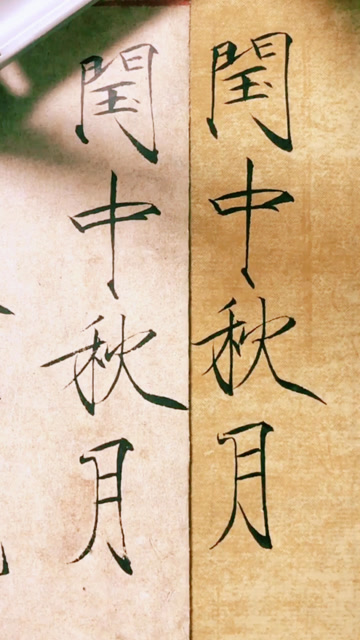 閏中秋月
閏中秋月